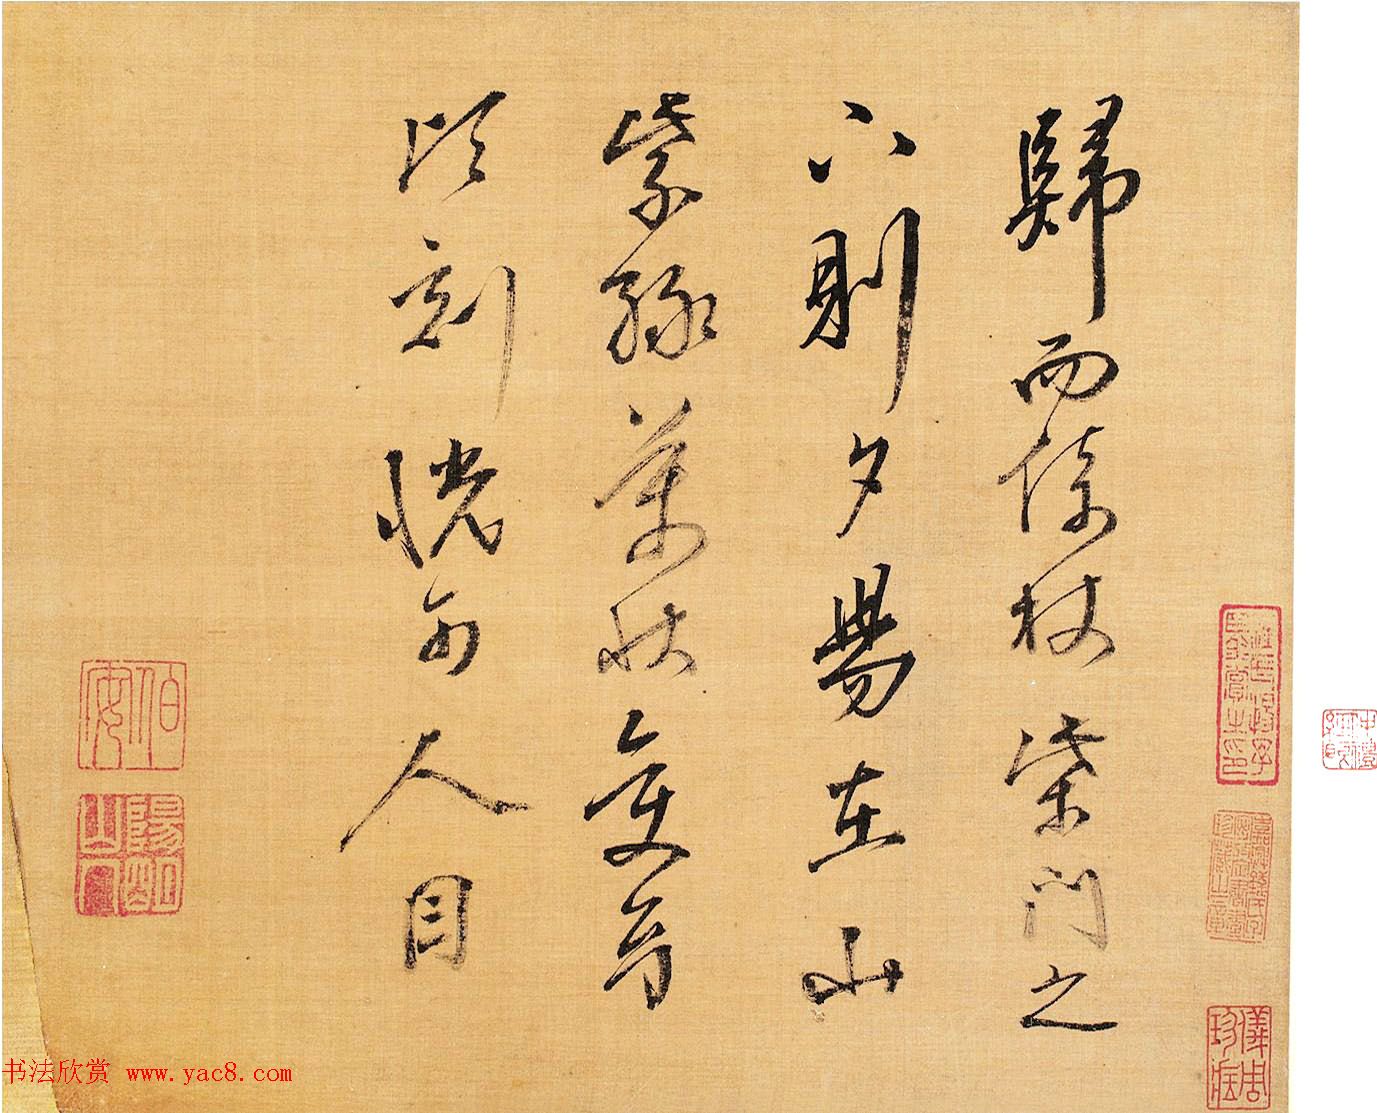 歸而倚杖柴門之
下則夕陽在山
紫綠萬狀變幻
頃刻恍可人目
伯安
陽明山人
儀周珍藏
书法欣赏 www.yac8.com